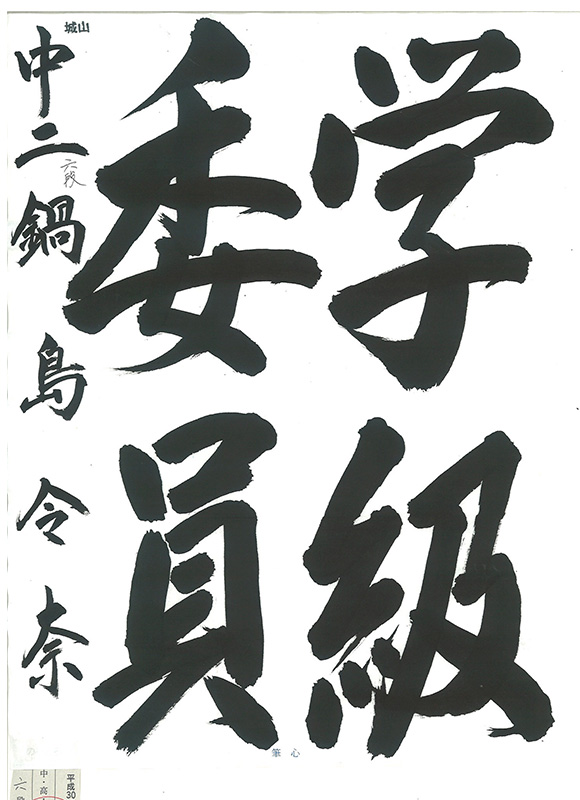 学級
委員
中二 鍋島令奈
六段
城山
心筆
平成30
中・高
六